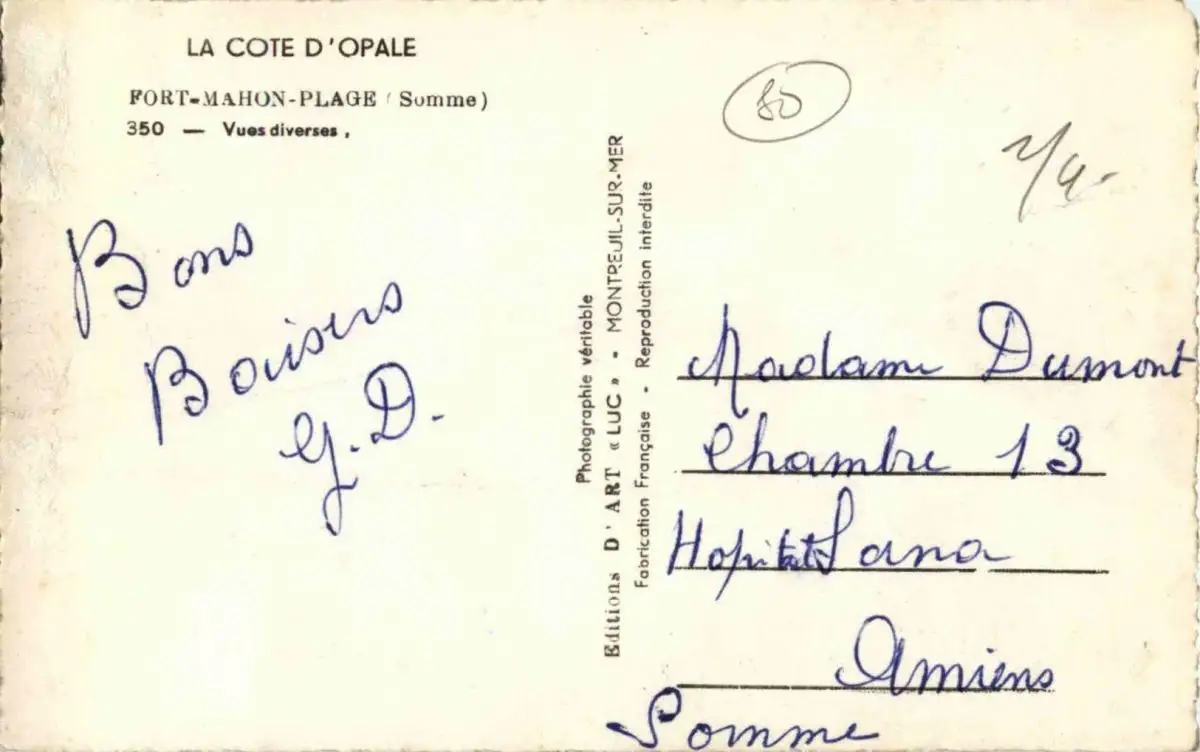 LA COTE D'OPALE
FORT-MAHON-PLAGE (Somme)
350 — Vues diverses.
Bons
Baisers
G. D.
Photographie véritable
Editions D'ART « LUC » - MONTREUIL-SUR-MER
Fabrication Française - Reproduction interdite
80
Madame Dumont
Chambre 13
Hopital Sana
Amiens
Somme